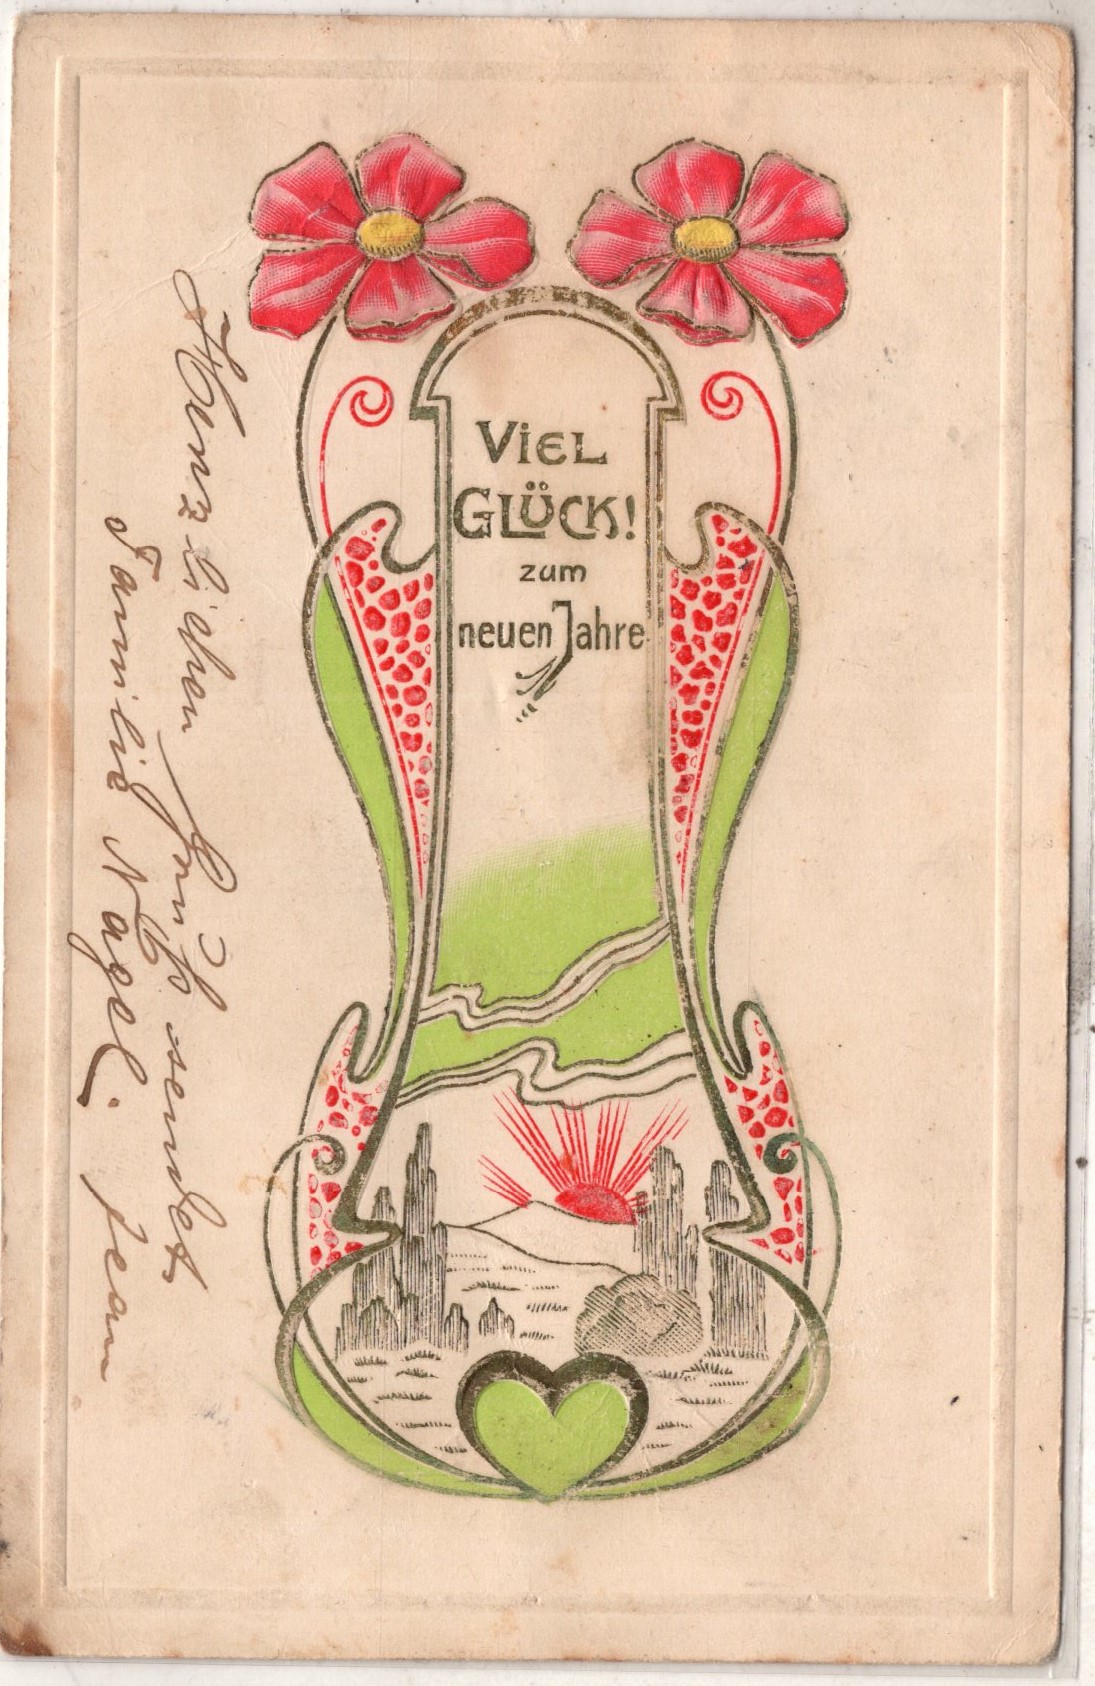 VIEL
GLÜCK!
zum
neuen Jahre
Herzlichen Gruß sendet
Familie Nagel. Jean